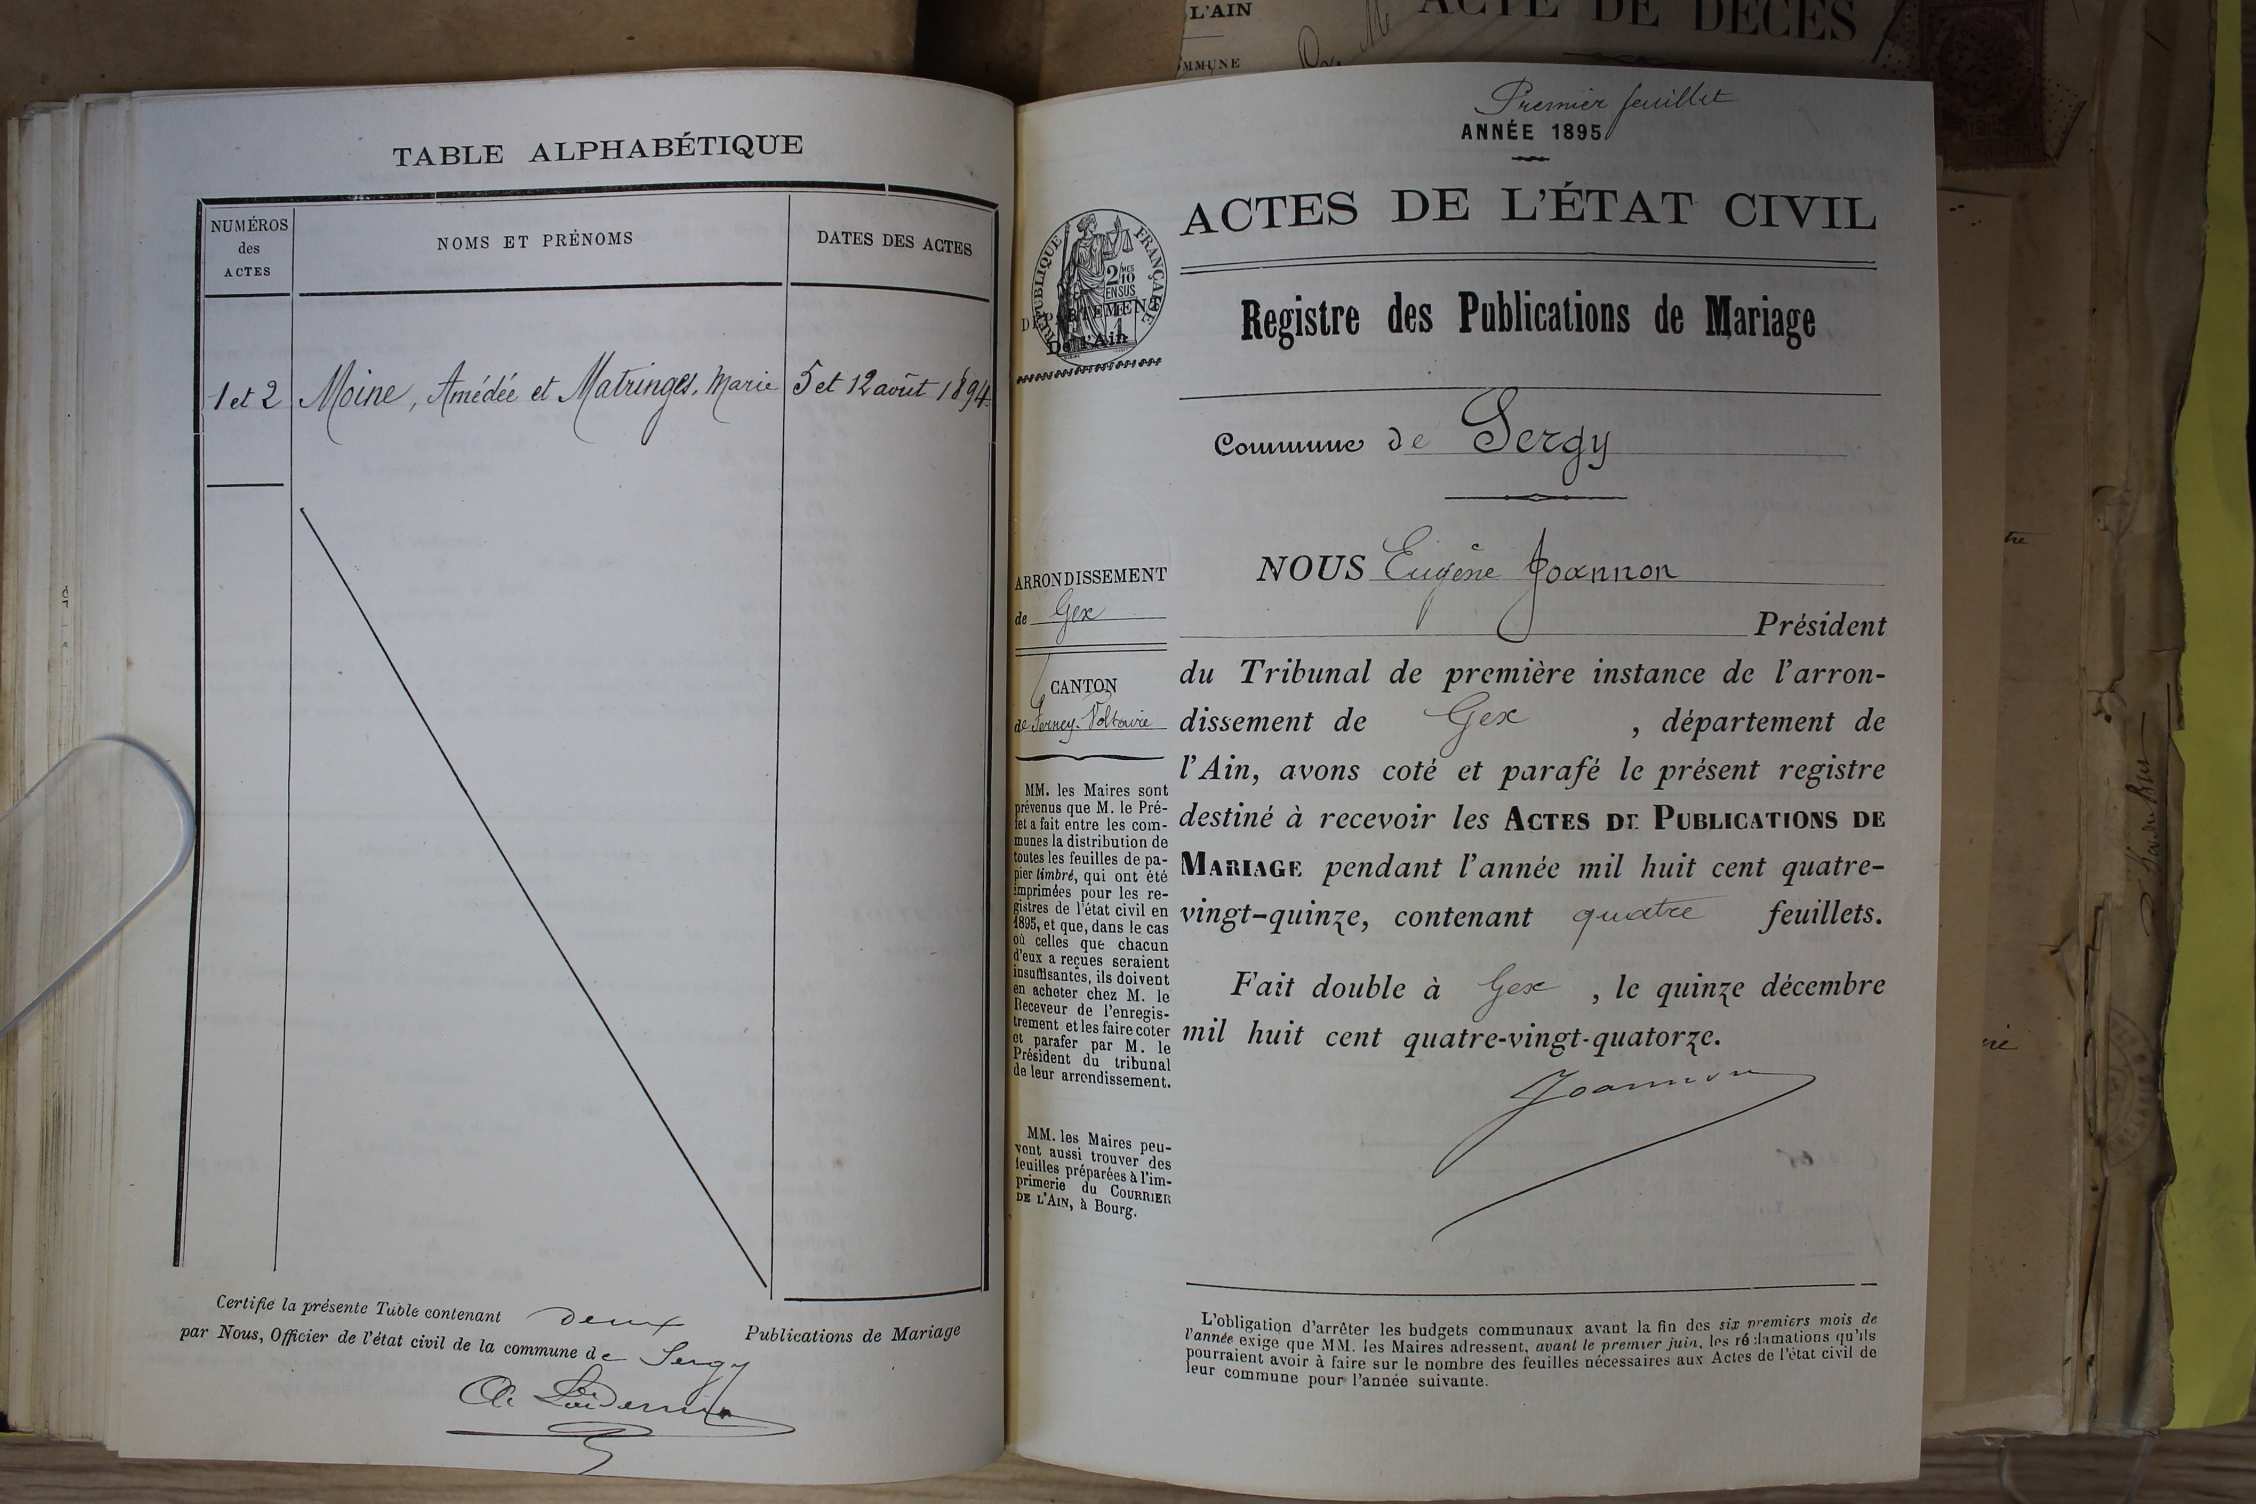 L'AIN
ACTE DE DÉCÈS
TABLE ALPHABÉTIQUE
NUMÉROS
des
ACTES
NOMS ET PRÉNOMS
DATES DES ACTES
1 et 2
Moine, Amédée et Matringes, Marie
5 et 12 août 1894
Certifie la présente Table contenant deux
Publications de Mariage
par Nous, Officier de l'état civil de la commune de Sergy
Premier feuillet
ANNÉE 1895
ACTES DE L'ÉTAT CIVIL
RÉPUBLIQUE FRANÇAISE
2/10 MES
EN SUS
DÉPARTEMENT
De l'Ain
Registre des Publications de Mariage
Commune de Sergy
ARRONDISSEMENT
de Gex
CANTON
de Ferney-Voltaire
MM. les Maires sont
prévenus que M. le Pré-
fet a fait entre les com-
munes la distribution de
toutes les feuilles de pa-
pier timbré, qui ont été
imprimées pour les re-
gistres de l'état civil en
1895, et que, dans le cas
où celles que chacun
d'eux a reçues seraient
insuffisantes, ils doivent
en acheter chez M. le
Receveur de l'enregis-
trement et les faire coter
et parafer par M. le
Président du tribunal
de leur arrondissement.
MM. les Maires peu-
vent aussi trouver des
feuilles préparées à l'im-
primerie du COURRIER
DE L'AIN, à Bourg.
NOUS Eugène Joannon
Président
du Tribunal de première instance de l'arron-
dissement de Gex, département de
l'Ain, avons coté et parafé le présent registre
destiné à recevoir les ACTES DE PUBLICATIONS DE
MARIAGE pendant l'année mil huit cent quatre-
vingt-quinze, contenant quatre feuillets.
Fait double à Gex, le quinze décembre
mil huit cent quatre-vingt-quatorze.
Joannon
L'obligation d'arrêter les budgets communaux avant la fin des six premiers mois de
l'année exige que MM. les Maires adressent, avant le premier juin, les réclamations qu'ils
pourraient avoir à faire sur le nombre des feuilles nécessaires aux Actes de l'état civil de
leur commune pour l'année suivante.